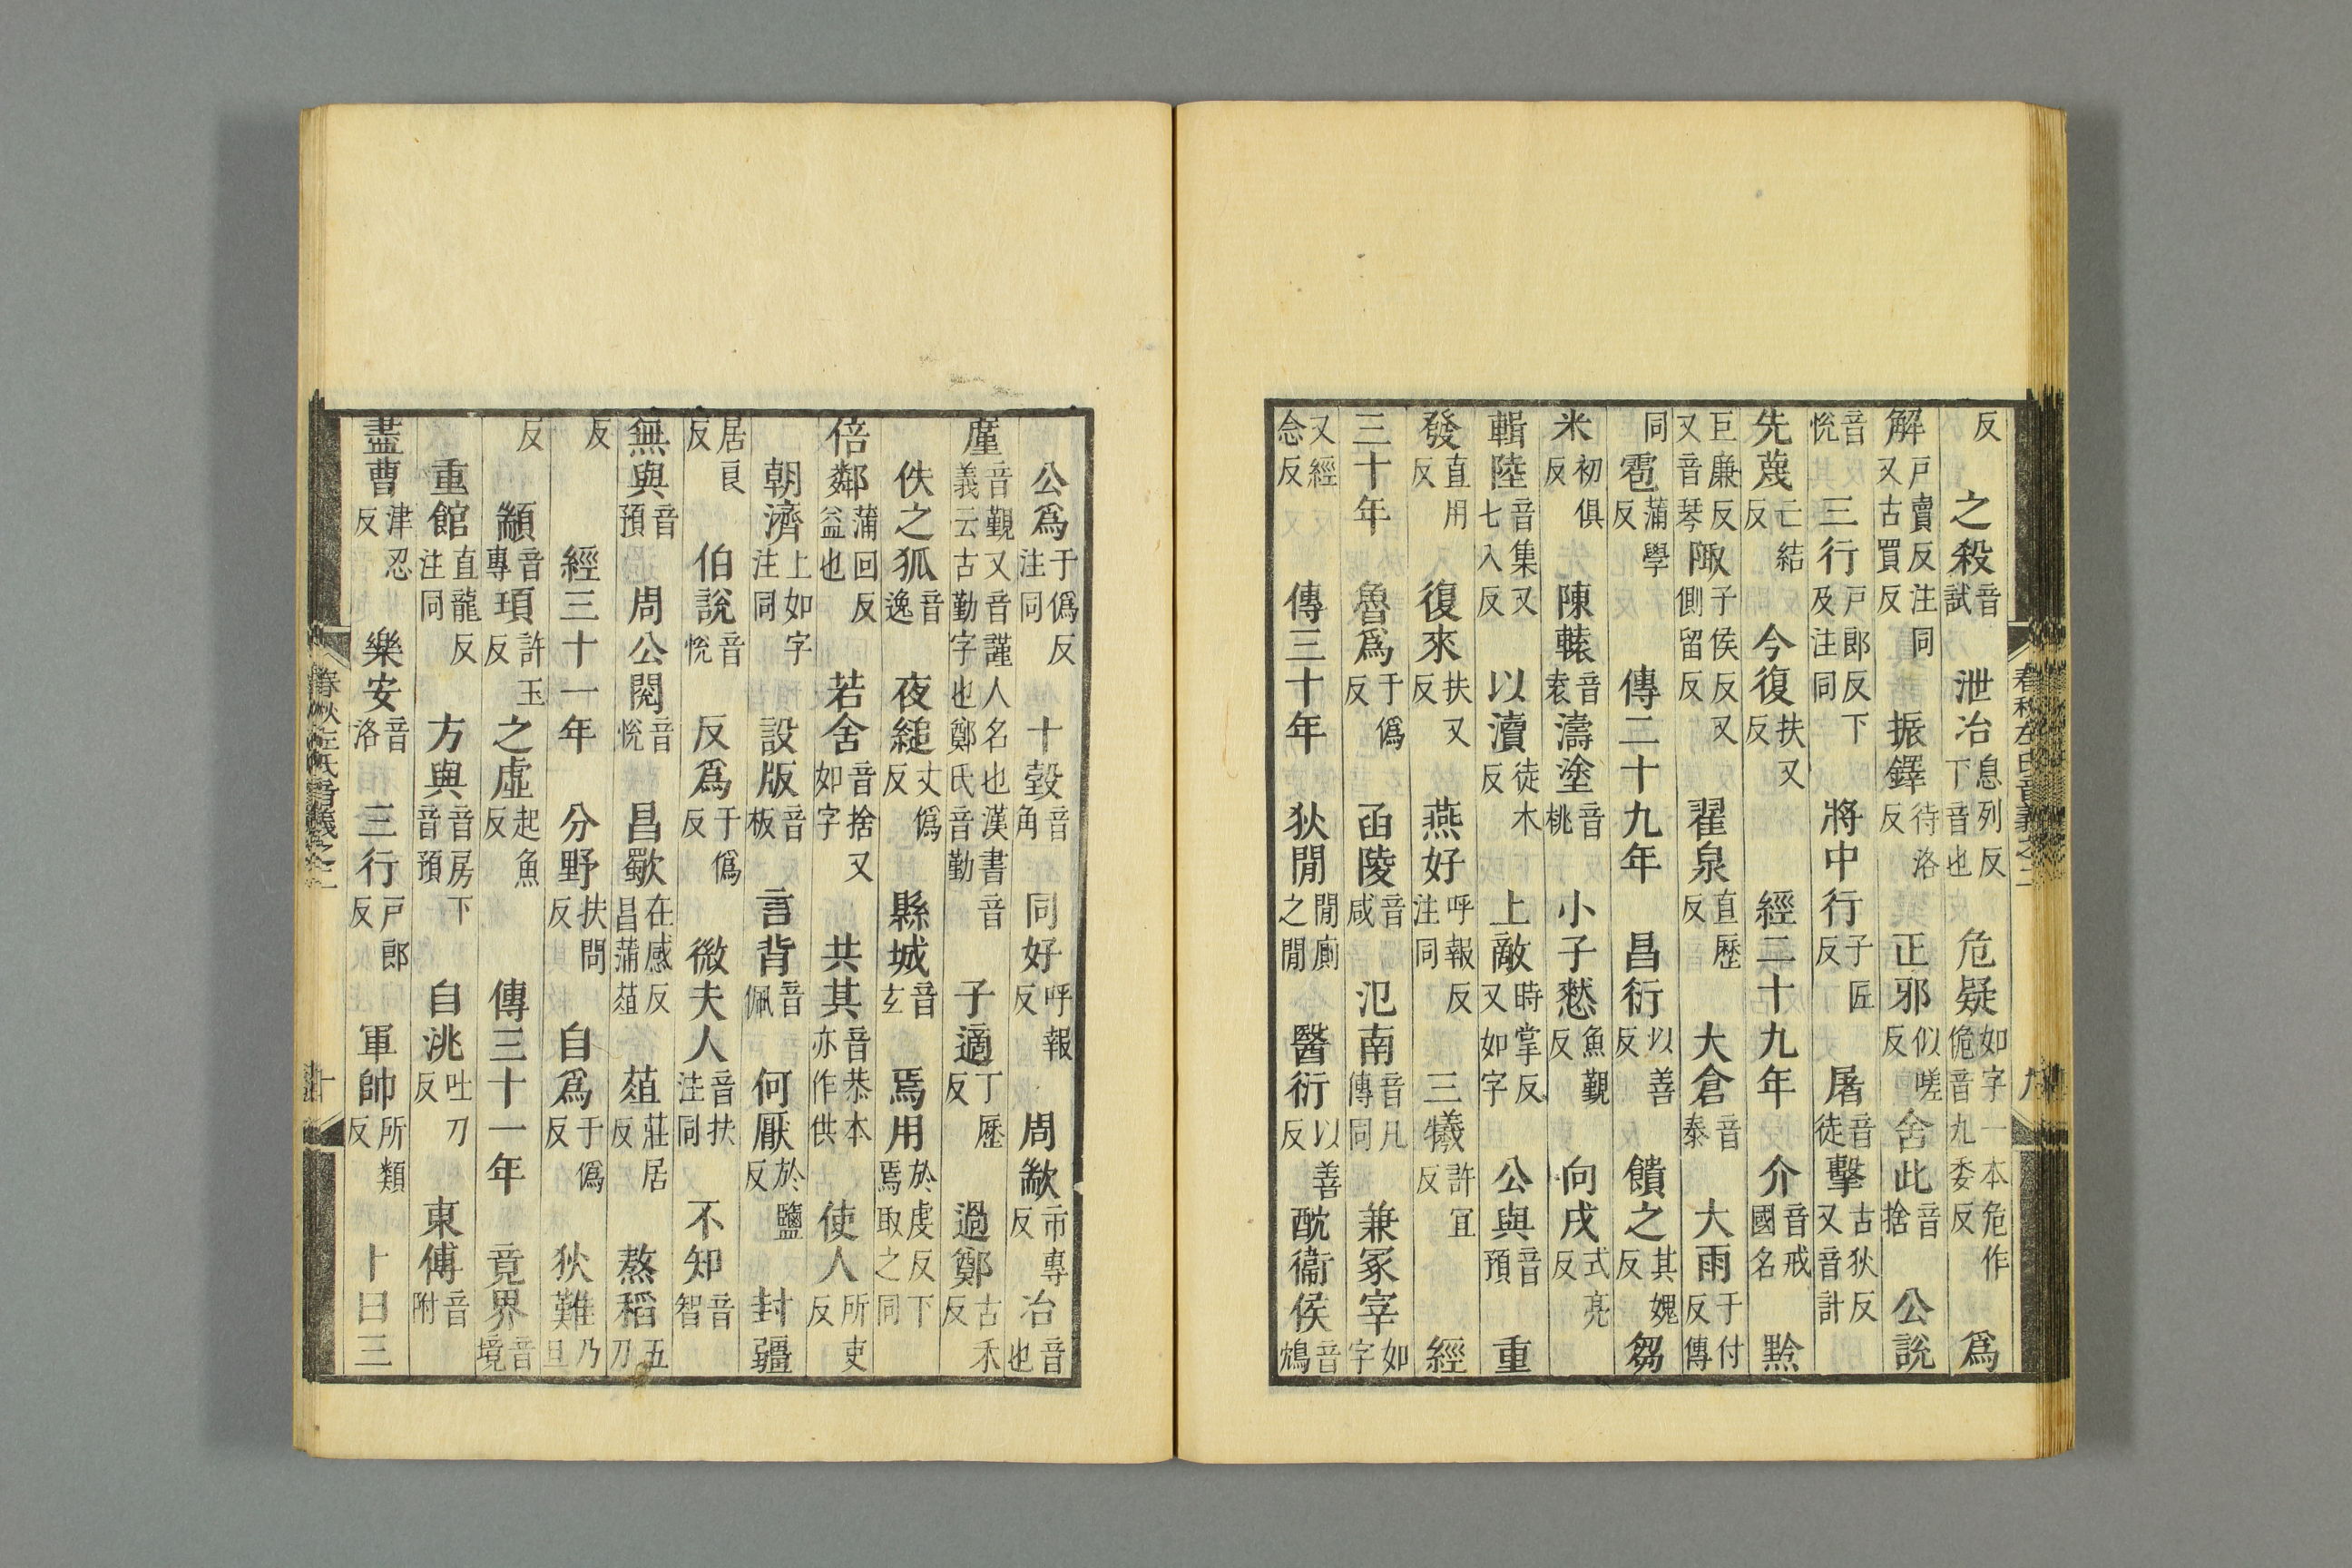 反　之殺音試　泄冶息列反下音也　危疑如字一本危作佹音九委反　爲
解戶賣反注同又古買反　振鐸待洛反　正邪似嗟反　舍此音捨　公說
音悅　三行戶郎反下及注同　將中行子匠反　屠音徒擊古狄反又音計
先蔑亡結反　今復扶又反　經二十九年　介音戒國名　黔
巨廉反又音琴陬子侯反又側留反　翟泉直歷反　大倉音泰　大雨于付反傳
同　雹蒲學反　傳二十九年　昌衍以善反　饋之其媿反芻
米初俱反　陳轅音袁濤塗音桃　小子憖魚覲反　向戌式亮反
輯陸音集又七入反　以瀆徒木反　上敵時掌反又如字　公與音預　重
發直用反　復來扶又反　燕好呼報反注同　三犧許宜反　經
三十年　魯爲于僞反　函陵音咸　氾南音凡傳同　兼冢宰如字
又經念反　傳三十年　狄閒閒廁之閒　醫衍以善反酖衞侯音鴆
春秋左氏音義之二　九
公爲于僞反注同　十瑴音角　同好呼報反　周歂市專反冶音也
廑音覲又音謹人名也漢書音義云古勤字也鄭氏音勤　子適丁歷反　過鄭古禾反
佚之狐音逸　夜縋丈僞反　縣城音玄　焉用於虔反下焉取之同
倍鄰蒲回反益也　若舍音捨又如字　共其音恭本亦作供　使人所吏反
朝濟上如字注同　設版音板　言背音佩　何厭於鹽反　封疆
居良反　伯說音悅　反爲于僞反　微夫人音扶注同　不知音智
無與音預　周公閱音悅　昌歜在感反昌蒲葅　葅莊居反　熬稻五刀
反　經三十一年　分野扶問反　自爲于僞反　狄難乃旦
反　顓音專頊許玉反　之虛起魚反　傳三十一年　竟界音境
重館直龍反注同　方與音房下音預　自洮吐刀反　東傅音附
盡曹津忍反　樂安音洛　三行戶郎反　軍帥所類反　十曰三
春秋左氏音義之二　十